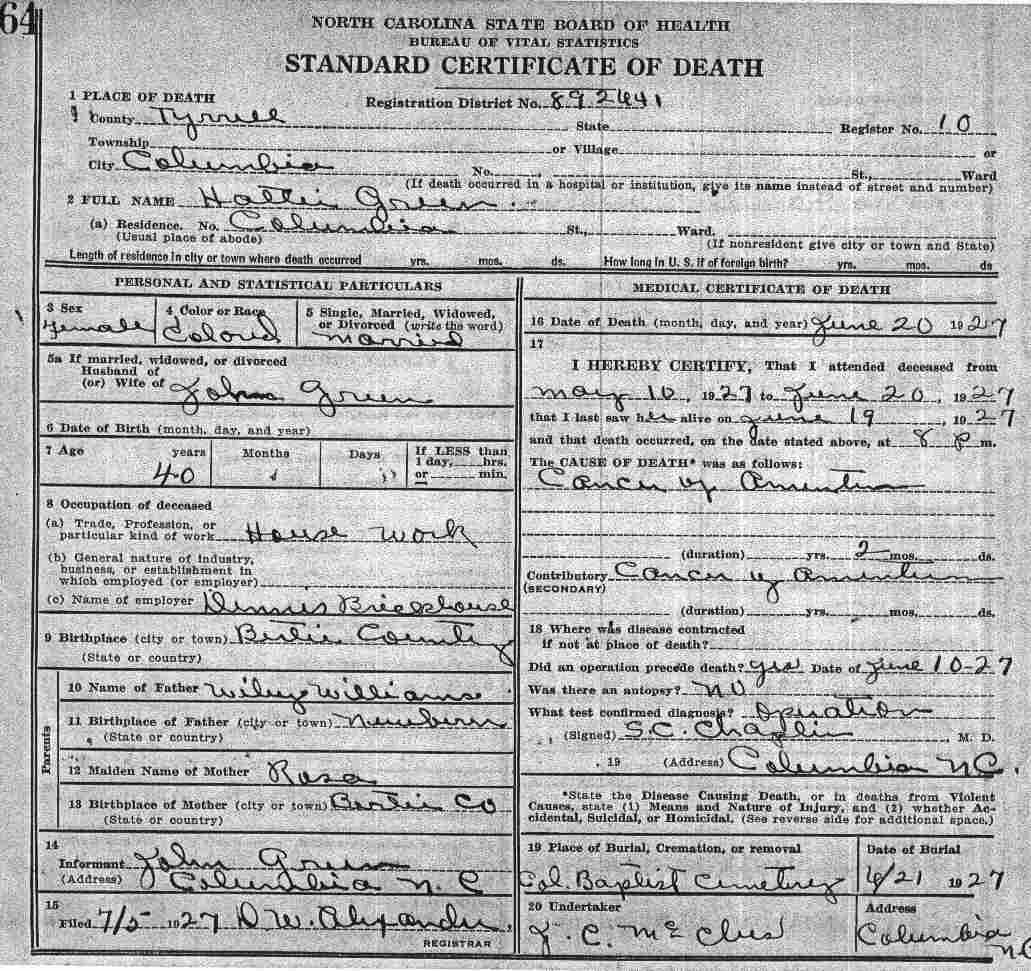 64
NORTH CAROLINA STATE BOARD OF HEALTH
BUREAU OF VITAL STATISTICS
STANDARD CERTIFICATE OF DEATH
1 PLACE OF DEATH
Registration District No. 892441
County Tyrrell State Register No. 10
Township or Village or
City Columbia No. St., Ward
(If death occurred in a hospital or institution, give its name instead of street and number)
2 FULL NAME Hattie Green
(a) Residence. No. Columbia St., Ward.
(Usual place of abode) (If nonresident give city or town and State)
Length of residence in city or town where death occurred yrs. mos. ds. How long in U. S. if of foreign birth? yrs. mos. ds
PERSONAL AND STATISTICAL PARTICULARS
3 Sex
Female
4 Color or Race
Colored
5 Single, Married, Widowed,
or Divorced (write the word)
Married
5a If married, widowed, or divorced
Husband of
(or) Wife of John Green
6 Date of Birth (month, day, and year)
7 Age years Months Days If LESS than
1 day, hrs.
or min.
40
8 Occupation of deceased
(a) Trade, Profession, or
particular kind of work House work
(b) General nature of industry,
business, or establishment in
which employed (or employer)
(c) Name of employer Dennis Brickhouse
9 Birthplace (city or town) Bertie County
(State or country)
Parents
10 Name of Father Wiley Williams
11 Birthplace of Father (city or town) Newbern
(State or country)
12 Maiden Name of Mother Rosa
13 Birthplace of Mother (city or town) Bertie Co
(State or country)
14
Informant John Green
(Address) Columbia N. C
15
Filed 7/5 1927 D. W. Alexander
REGISTRAR
MEDICAL CERTIFICATE OF DEATH
16 Date of Death (month, day, and year) June 20 1927
17
I HEREBY CERTIFY, That I attended deceased from
May 10, 1927 to June 20, 1927
that I last saw her alive on June 19, 1927
and that death occurred, on the date stated above, at 8 P m.
The CAUSE OF DEATH* was as follows:
Cancer of Amentum
(duration) yrs. 2 mos. ds.
Contributory Cancer of Amentum
(SECONDARY)
(duration) yrs. mos. ds.
18 Where was disease contracted
if not at place of death?
Did an operation precede death? yes Date of June 10-27
Was there an autopsy? No
What test confirmed diagnosis? Operation
(Signed) S.C. Chaplin, M. D.
, 19 (Address) Columbia NC.
*State the Disease Causing Death, or in deaths from Violent
Causes, state (1) Means and Nature of Injury, and (2) whether Ac-
cidental, Suicidal, or Homicidal. (See reverse side for additional space.)
19 Place of Burial, Cremation, or removal
Col. Baptist Cemetrey
Date of Burial
6/21 1927
20 Undertaker
J. C. McClees
Address
Columbia
N.C.